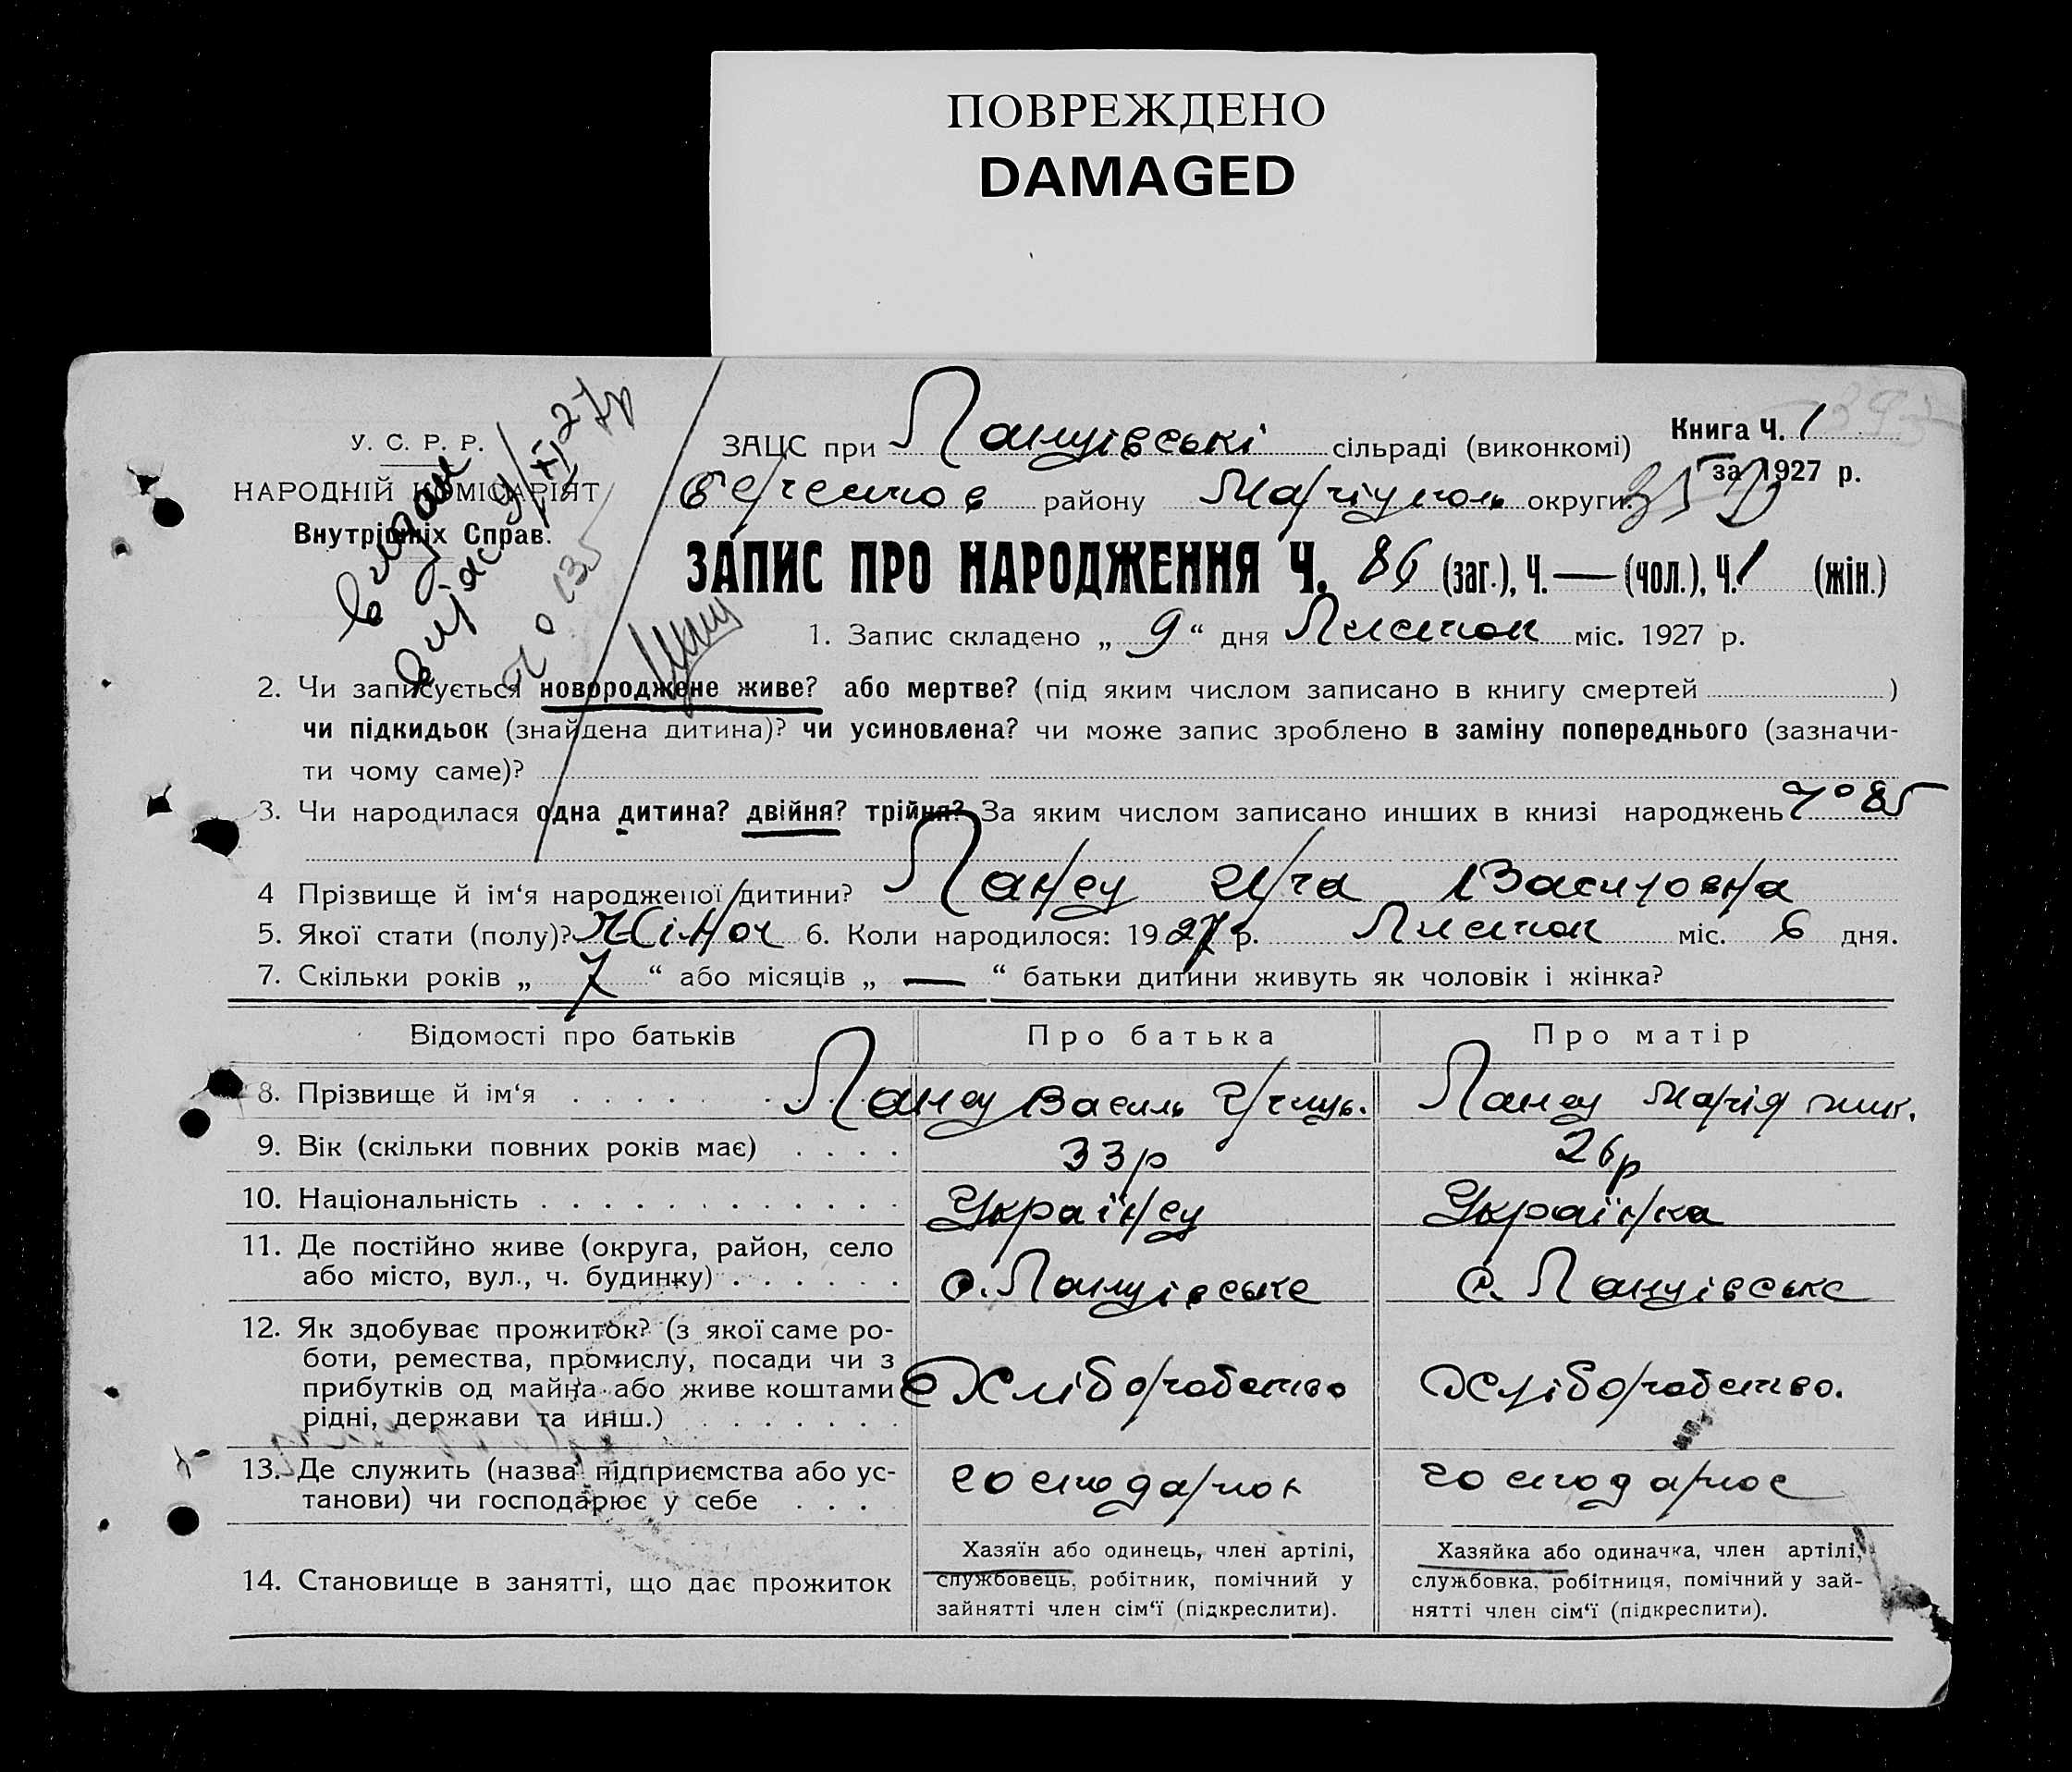 ПОВРЕЖДЕНО
DAMAGED
У. С. Р. Р.
НАРОДНІЙ КОМІСАРІЯТ
Внутрішніх Справ.
видан
витяг 9/XI 27р
№ 135
ЗАЦС при сільраді (виконкомі)
району Маріупол округи.
Книга Ч. 1
за 1927 р.
ЗАПИС ПРО НАРОДЖЕННЯ Ч. 86 (заг.), Ч. — (чол.), Ч. 1 (жін.)
1. Запис складено „ 9 “ дня Листоп міс. 1927 р.
2. Чи записується новороджене живе? або мертве? (під яким числом записано в книгу смертей )
чи підкидьок (знайдена дитина)? чи усиновлена? чи може запис зроблено в заміну попереднього (зазначи-
ти чому саме)?
3. Чи народилася одна дитина? двійня? трійня? За яким числом записано инших в книзі народжень № 85
4 Прізвище й ім‘я народженої дитини? Ганец Ира Василовна
5. Якої стати (полу)? Жіноч 6. Коли народилося: 1927 р. Листоп міс. 6 дня.
7. Скільки років „ 7 “ або місяців „ — “ батьки дитини живуть як чоловік і жінка?
Відомості про батьків Про батька Про матір
8. Прізвище й ім‘я . . . . Василь Марія
9. Вік (скільки повних років має) . . . . 33р 26р
10. Національність . . . . . . . . . . . . . Українец Українка
11. Де постійно живе (округа, район, село
або місто, вул., ч. будинку) . . . . . . с. с.
12. Як здобуває прожиток? (з якої саме ро-
боти, ремества, промислу, посади чи з
прибутків од майна або живе коштами Хліборобство Хліборобство.
рідні, держави та инш.) . . . . . . .
13. Де служить (назва підприємства або ус-
танови) чи господарює у себе . . . господарює господарює
14. Становище в занятті, що дає прожиток
Хазяїн або одинець, член артілі,
службовець, робітник, помічний у
зайнятті член сім‘ї (підкреслити).
Хазяйка або одиначка, член артілі,
службовка, робітниця, помічний у зай-
нятті член сім‘ї (підкреслити).